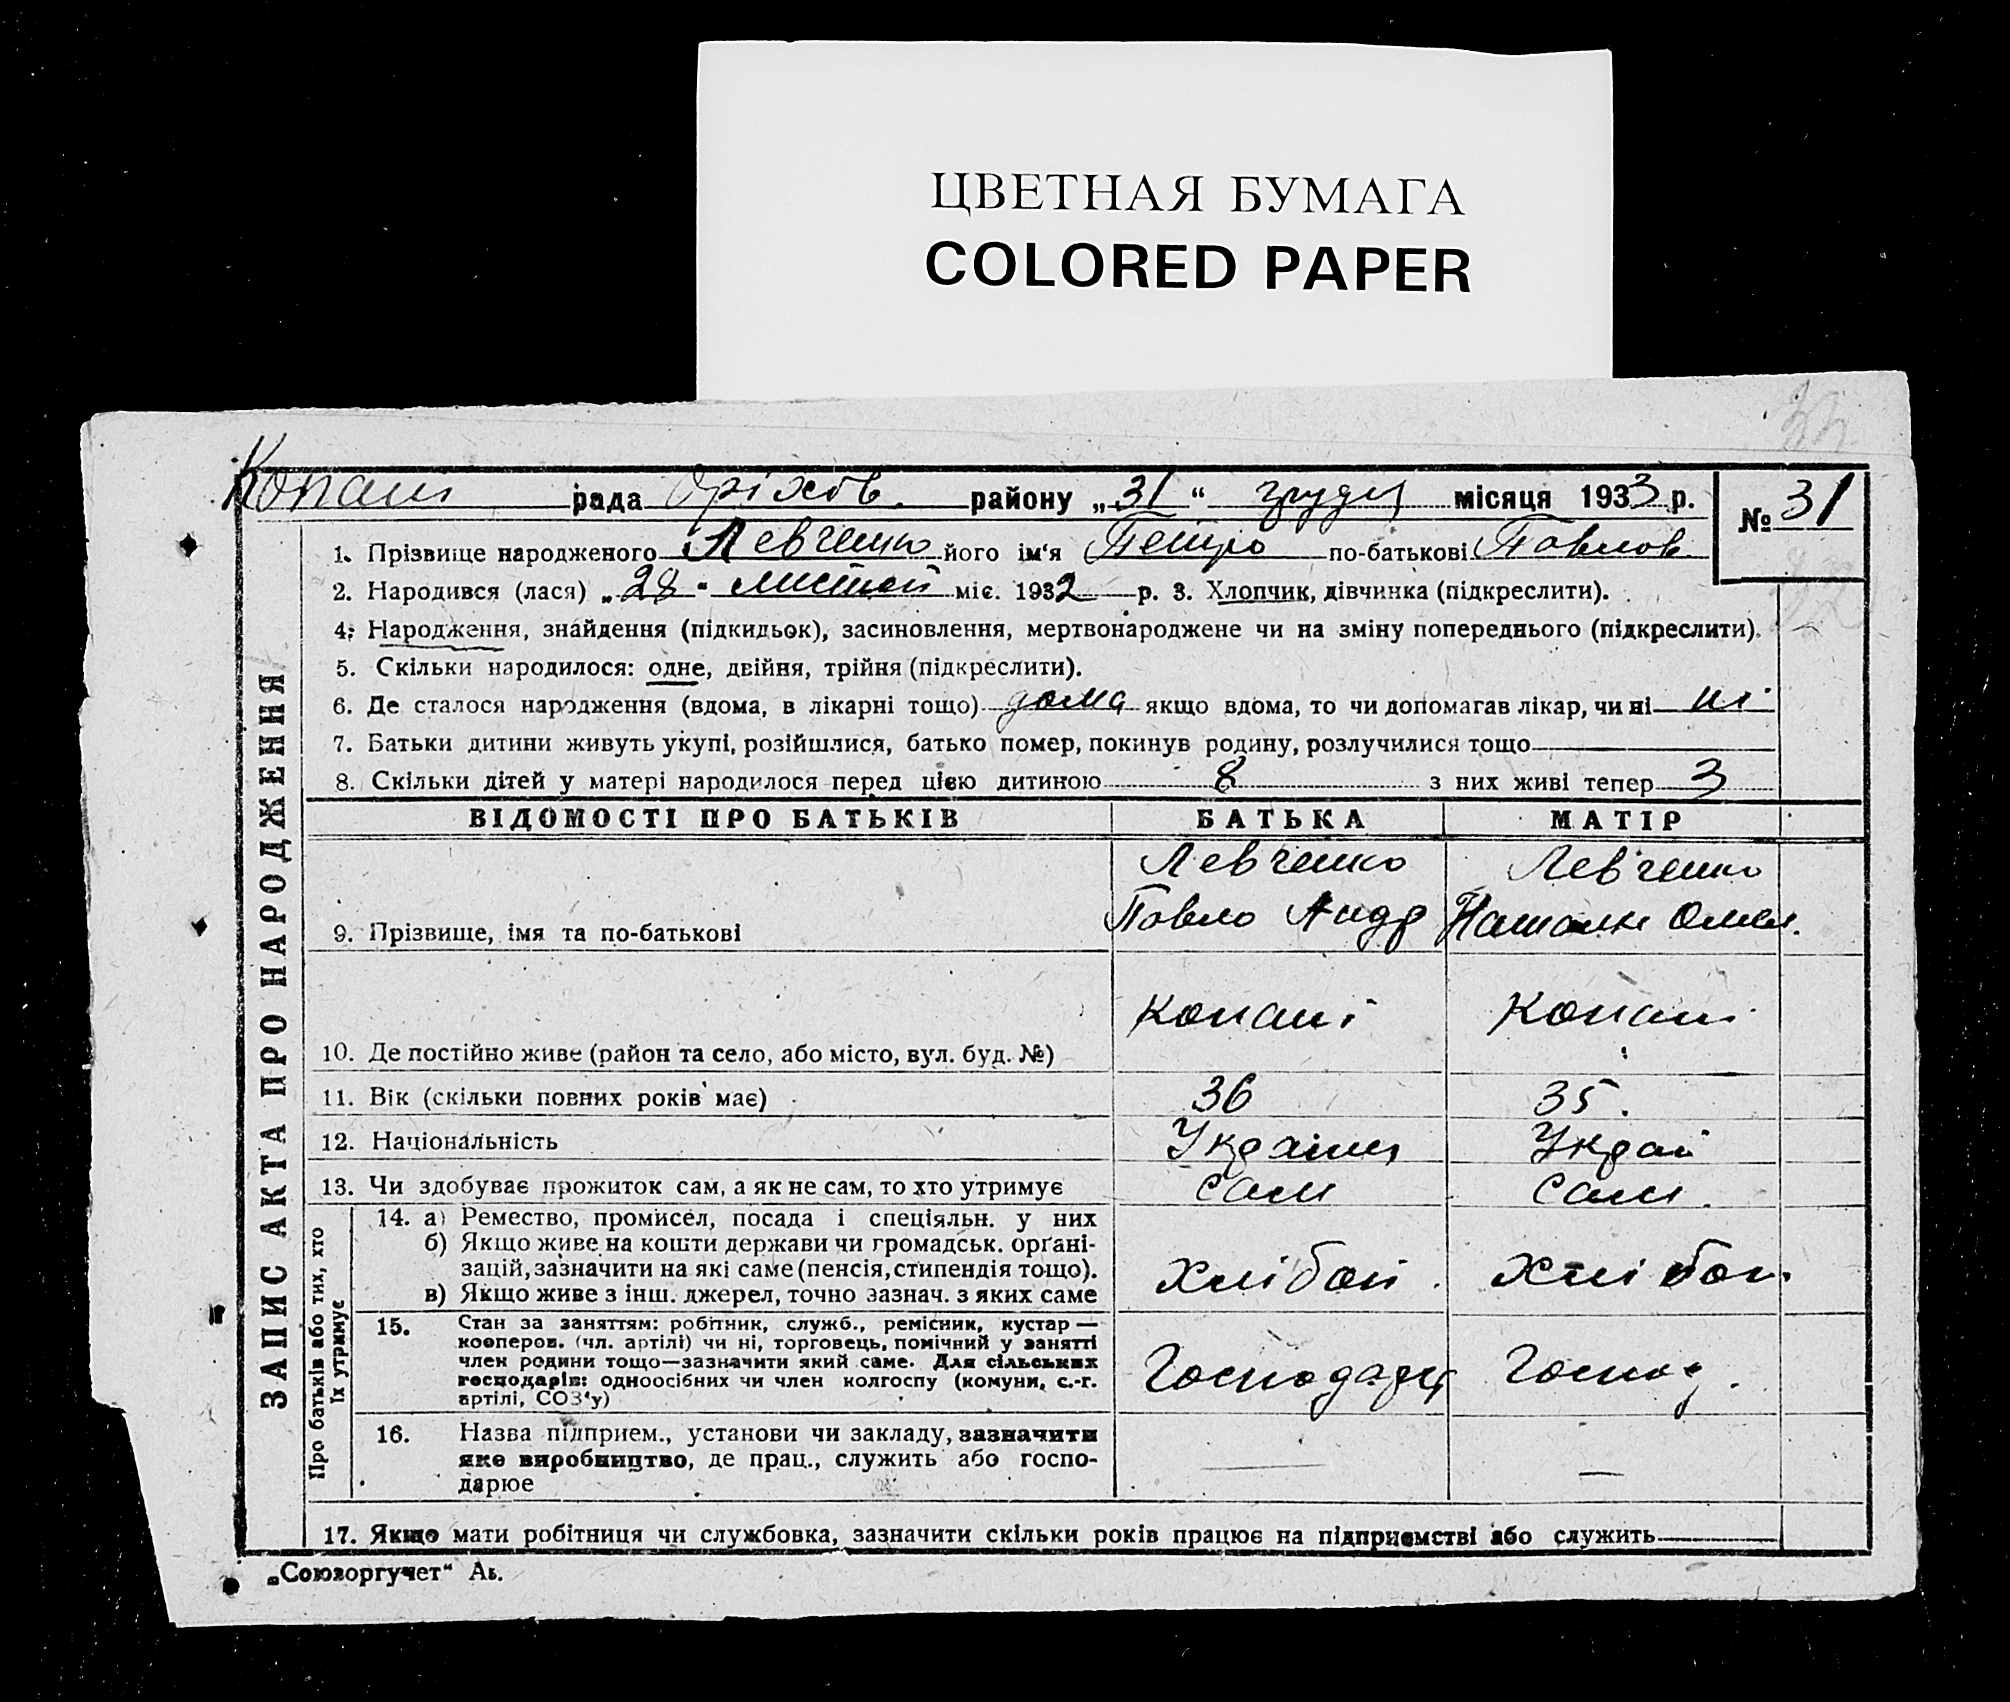 ЦВЕТНАЯ БУМАГА
COLORED PAPER
Копані рада Оріхів. району „31“ грудця місяця 1933 р.
№ 31
1. Прізвище народженого Левченко його ім'я Петро по-батькові Павлов
2. Народився (лася) „28" листоп міс. 1932 р. 3. Хлопчик, дівчинка (підкреслити).
4. Народження, знайдення (підкидьок), засиновлення, мертвонароджене чи на зміну попереднього (підкреслити).
5. Скільки народилося: одне, двійня, трійня (підкреслити).
6. Де сталося народження (вдома, в лікарні тощо) дома якщо вдома, то чи допомагав лікар, чи ні ні
7. Батьки дитини живуть укупі, розійшлися, батько помер, покинув родину, розлучилися тощо
8. Скільки дітей у матері народилося перед цією дитиною 8 з них живі тепер 3
ВІДОМОСТІ ПРО БАТЬКІВ БАТЬКА МАТІР
Левченко Левченко
9. Прізвище, імя та по-батькові Павло Андр Наталя Омел.
Копані Копані
10. Де постійно живе (район та село, або місто, вул. буд. №)
11. Вік (скільки повних років має) 36 35.
12. Національність Українц Украй
13. Чи здобуває прожиток сам, а як не сам, то хто утримує сам сам.
14. а) Ремество, промисел, посада і спеціяльн. у них
б) Якщо живе на кошти держави чи громадськ. органі-
зацій, зазначити на які саме (пенсія, стипендія тощо). хлібоп. хлібоп.
в) Якщо живе з інш. джерел, точно зазнач. з яких саме
15. Стан за заняттям: робітник, служб., ремісник, кустар —
кооперов. (чл. артілі) чи ні, торговець, помічний у занятті
член родини тощо—зазначити який саме. Для сільських
господарів: одноосібних чи член колгоспу (комуни, с.-г. Господарц Господ.
артілі, СОЗ'у)
16. Назва підприєм., установи чи закладу, зазначити
яке виробництво, де прац., служить або госпо- — —
дарює
17. Якщо мати робітниця чи службовка, зазначити скільки років працює на підприємстві або служить
ЗАПИС АКТА ПРО НАРОДЖЕННЯ
Про батьків або тих, хто
їх утримує
„Союзоргучет"